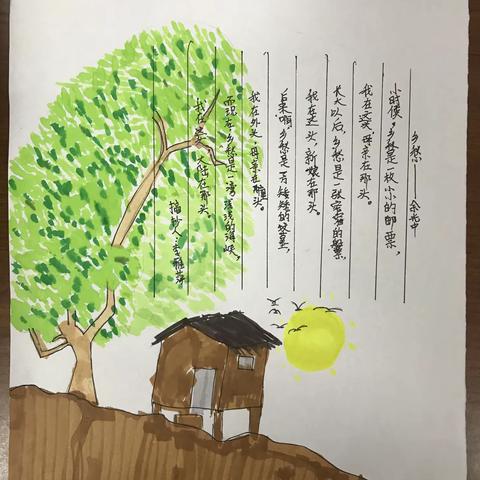 乡愁——余光中
小时候，乡愁是一枚小小的邮票，
我在这头，母亲在那头。
长大以后，乡愁是一张窄窄的船票，
我在这头，新娘在那头。
后来啊，乡愁是一方矮矮的坟墓，
我在外头，母亲在里头。
而现在，乡愁是一湾浅浅的海峡，
我在这头，大陆在那头。
抄人：李雅萍